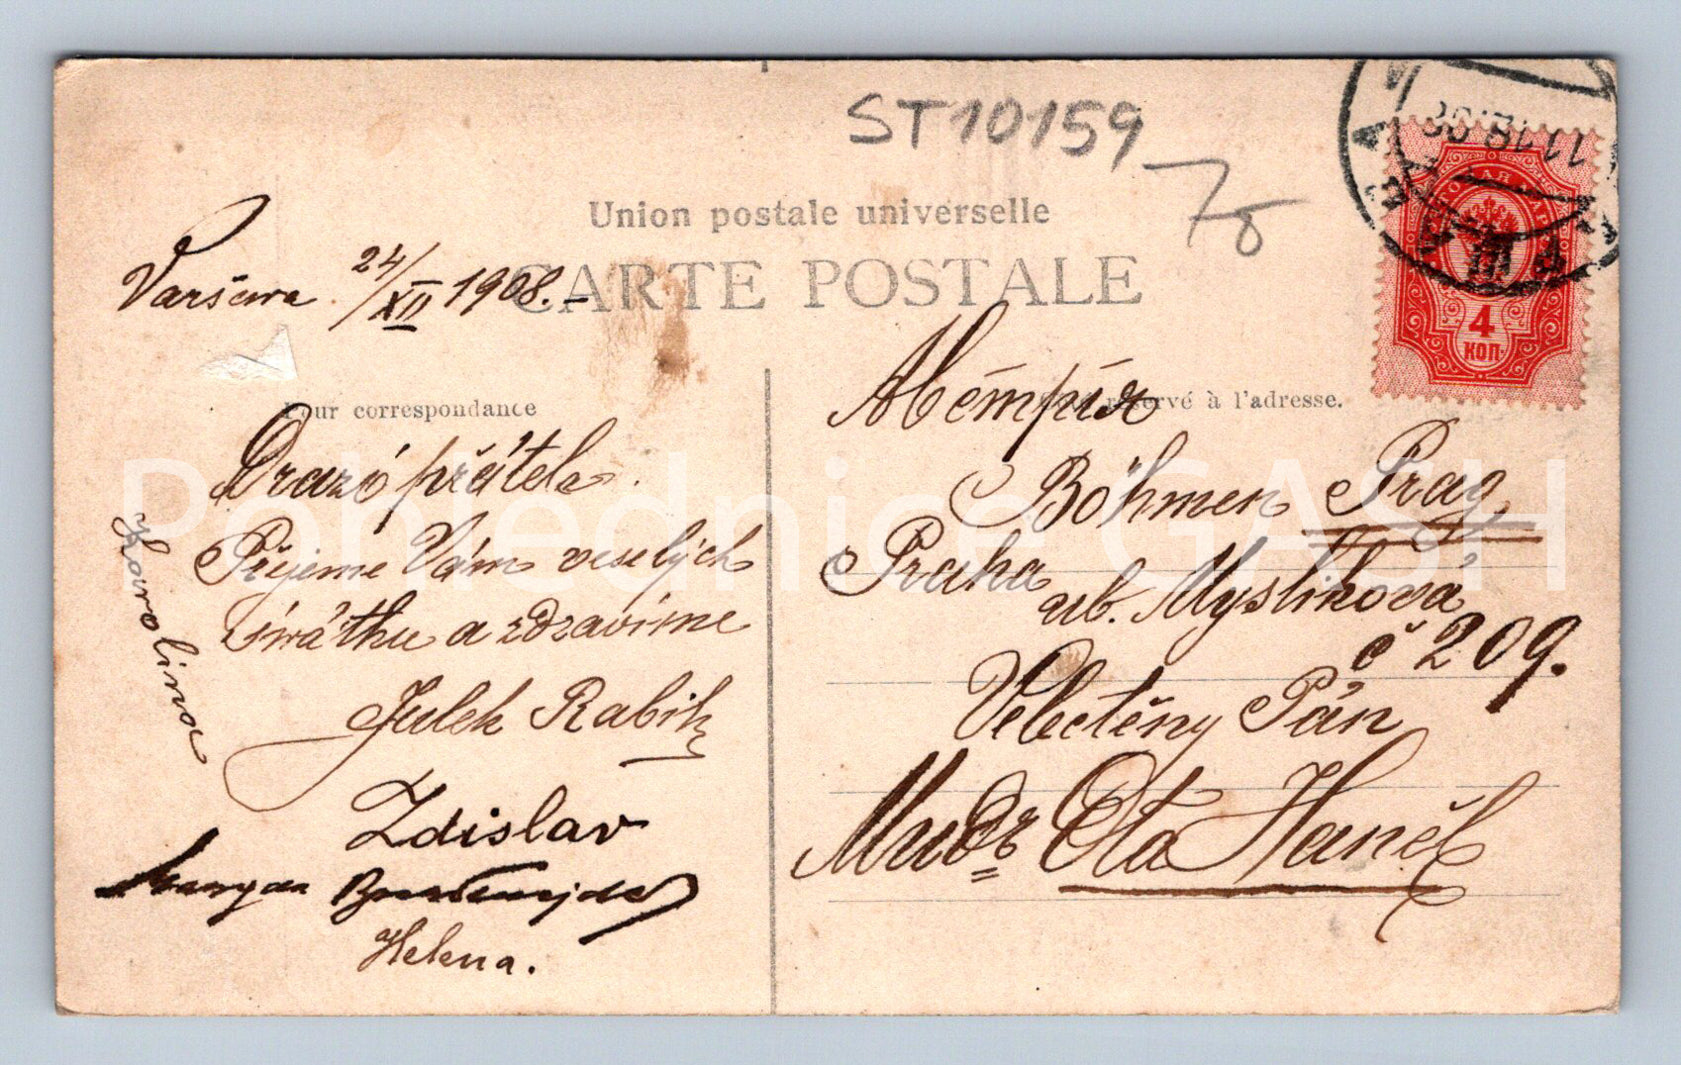 ST10159
78
Union postale universelle
CARTE POSTALE
Varšava 24/XII 1908.-
Pour correspondance
Drazí přátelé.
Přejeme Vám veselých
svátků a zdravíme
Julek Rabik
Zdislav
Helena.
Karolina
réservé à l'adresse.
Böhmen Prag
Praha
ul. Myslikova
č 209.
Velectěný Pán
Mudr Ota Haněl
4
КОП.
Pohlednice GASH